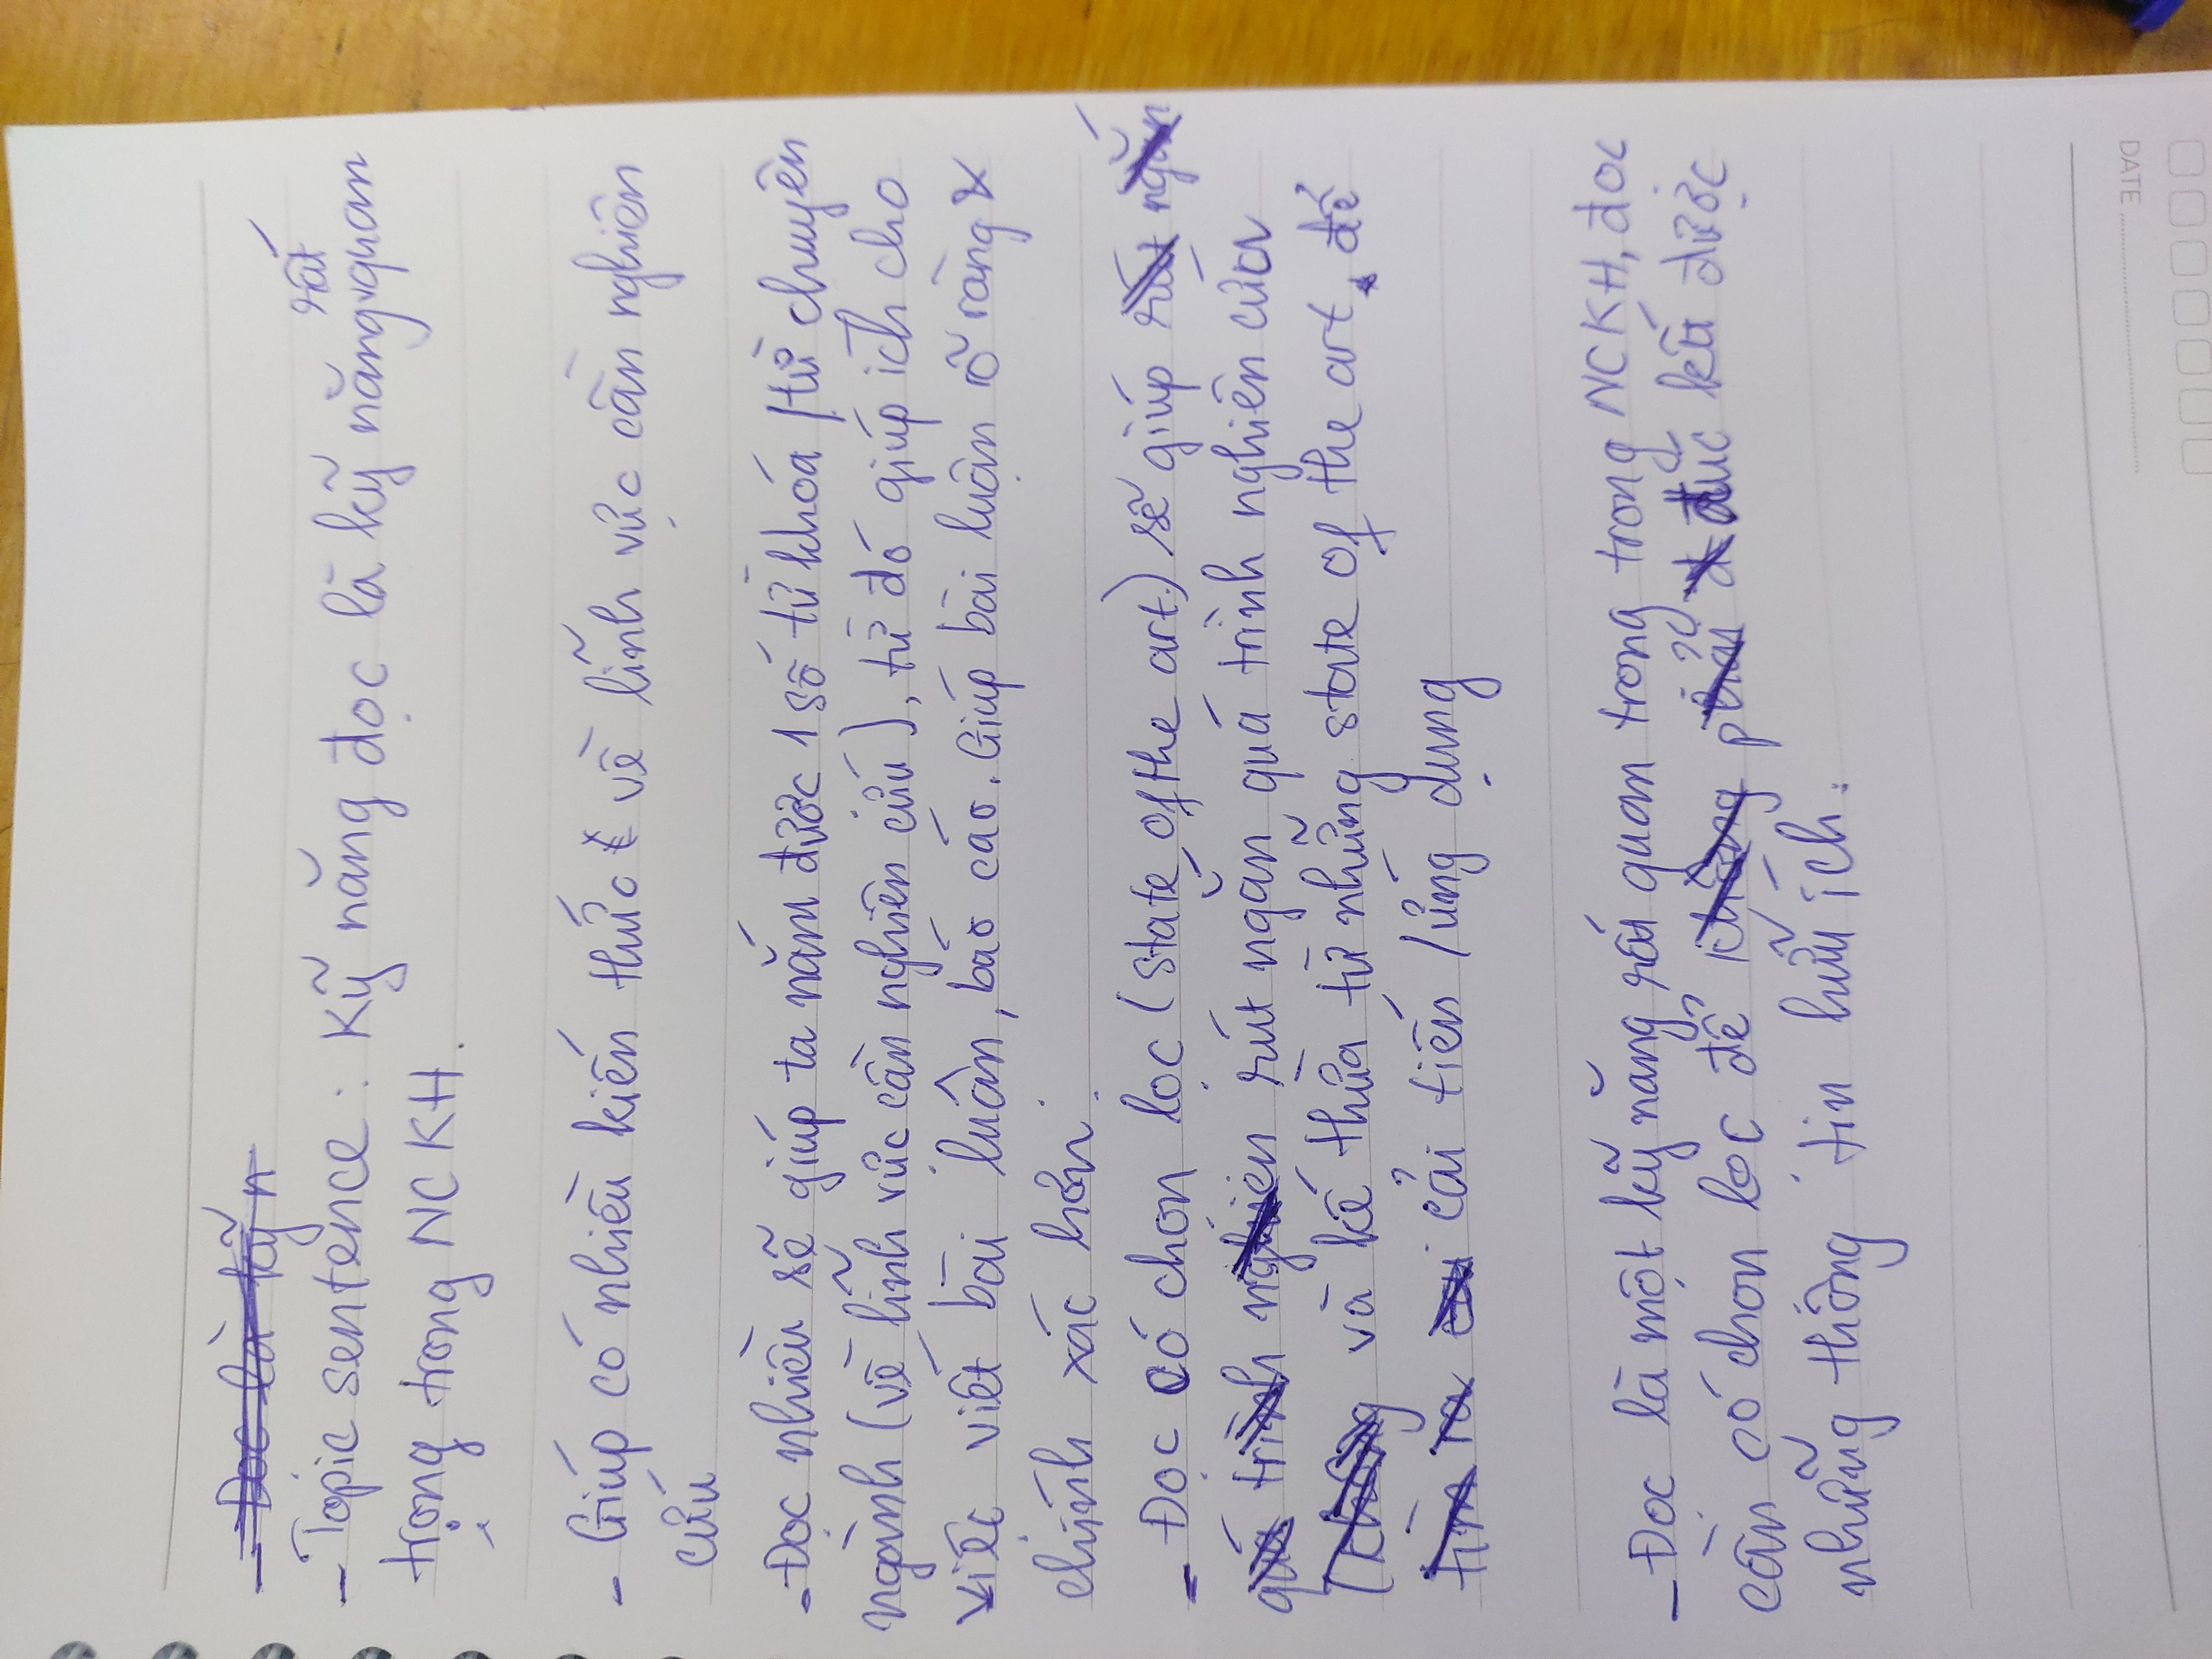 - Đọc là kỹ n
- Topic sentence : Kỹ năng đọc là kỹ năng rất quan
trọng trong NCKH.
- Giúp có nhiều kiến thức về lĩnh vực cần nghiên
cứu
- Đọc nhiều sẽ giúp ta nắm được 1 số từ khóa / từ chuyên
ngành (về lĩnh vực cần nghiên cứu), từ đó giúp ích cho
việc viết bài luận, báo cáo. Giúp bài luận rõ ràng &
chính xác hơn.
- Đọc có chọn lọc (state of the art) sẽ giúp rút ngắn
quá trình nghiên rút ngắn quá trình nghiên cứu
(không và kế thừa từ những state of the art, để
tìm ra cải cải tiến / ứng dụng
- Đọc là một kỹ năng rất quan trọng trong NCKH, đọc
cần có chọn lọc để không phải đ đúc kết được
những thông tin hữu ích.
DATE